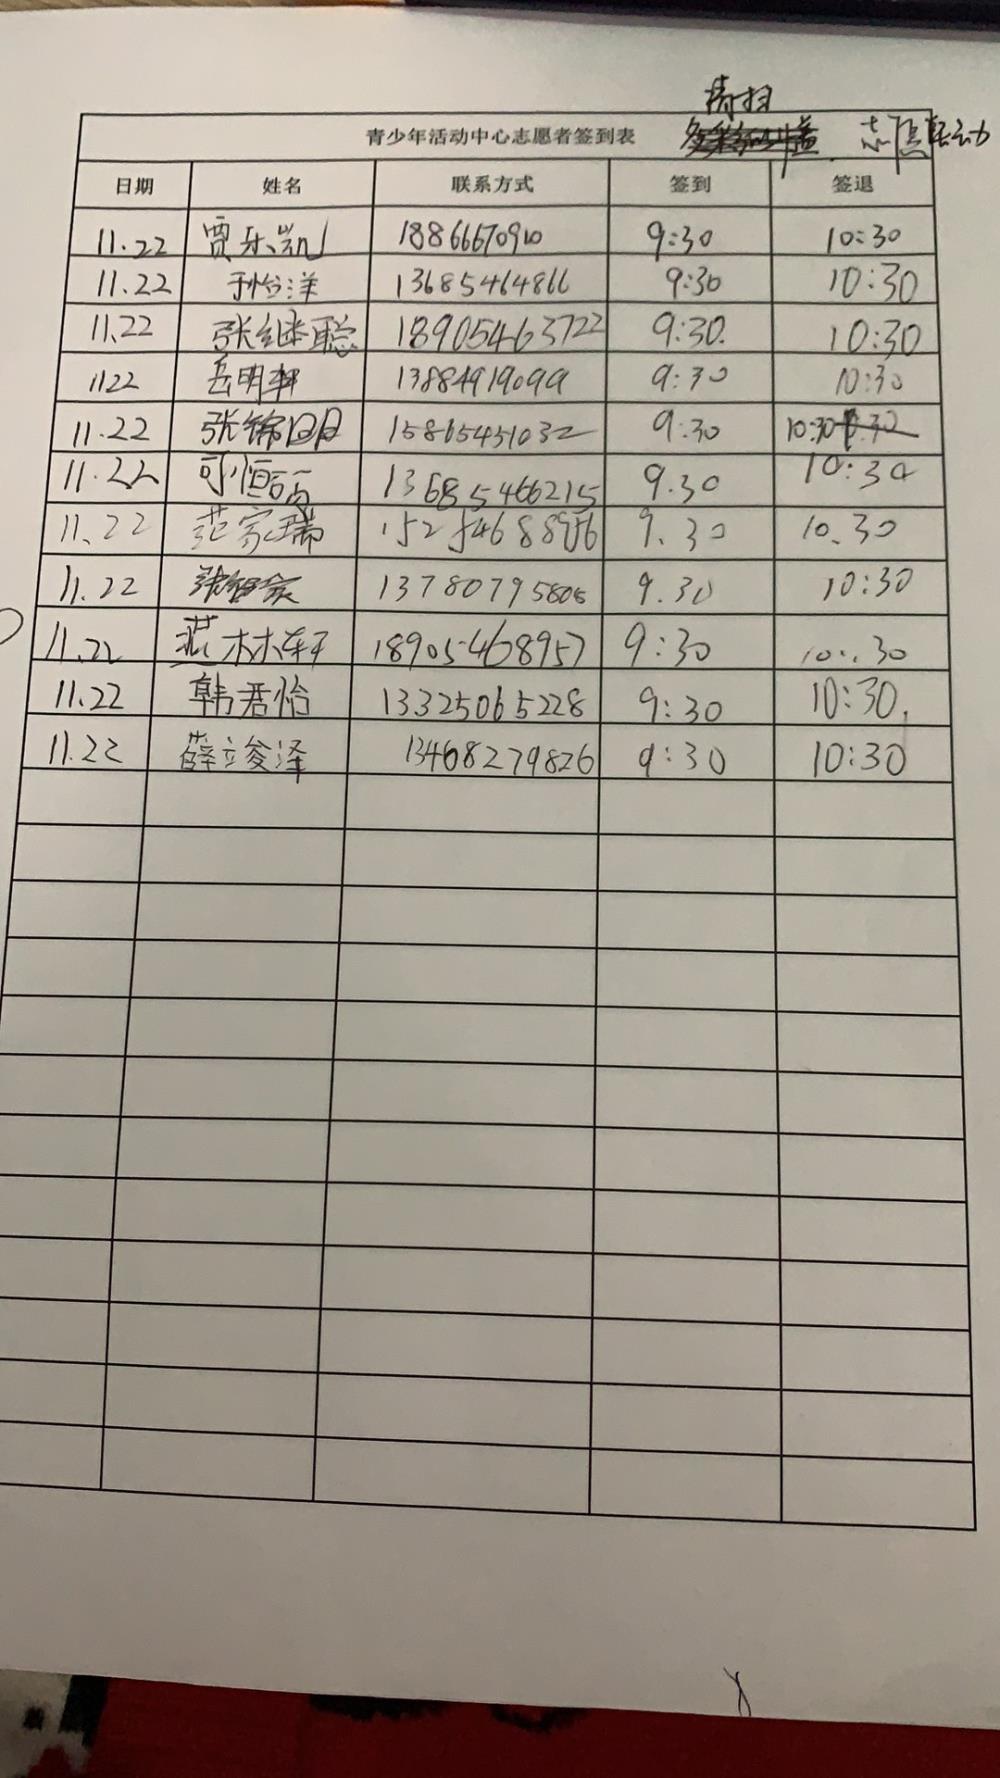 清扫
青少年活动中心志愿者签到表 志愿活动
日期 姓名 联系方式 签到 签退
11.22 贾乐凯 18866670910 9:30 10:30
11.22 于怡洋 13685464866 9:30 10:30
11.22 张继聪 18905463722 9:30. 10:30
1122 岳明轩 13884919099 9:30 10:30
11.22 张锦明 15865451032 9:30 10:30
11.22 13685466215 9.30 10:30
11.22 范家瑞 9.30 10.30
11.22 张智家 13780795805 9.30 10:30
11.22 林轩 18905468957 9:30 10:.30
11.22 韩君怡 13325065228 9:30 10:30.
11.22 薛竣泽 13468279826 9:30 10:30